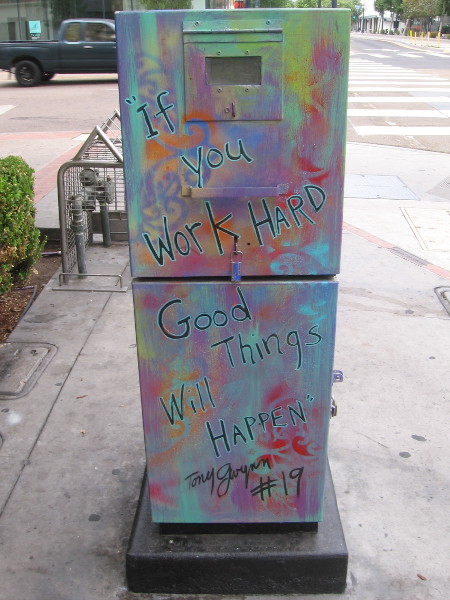 "If
you
Work HARD
Good
Things
Will
HAPPEN"
Tony Gwynn
#19